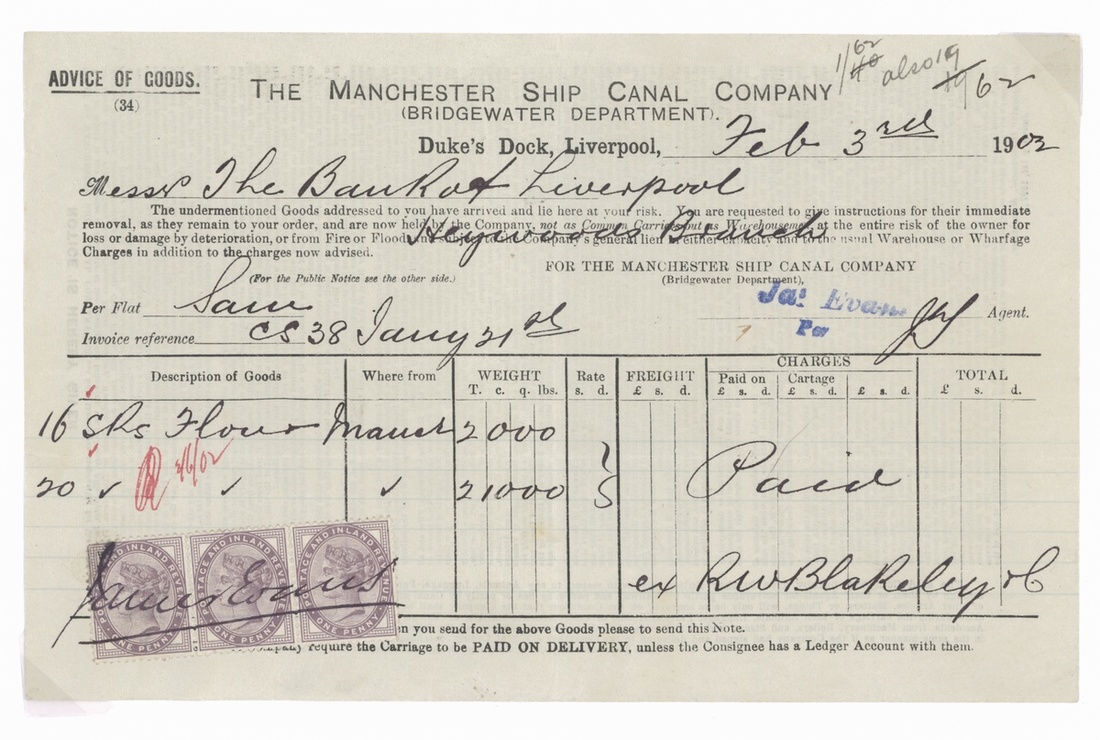 1/62 40 also 19
ADVICE OF GOODS.
(34)
THE MANCHESTER SHIP CANAL COMPANY
62
(BRIDGEWATER DEPARTMENT).
Duke's Dock, Liverpool, Feb 3rd 1902
Messrs The Bank of Liverpool
Heywoods Branch
The undermentioned Goods addressed to you have arrived and lie here at your risk. You are requested to give instructions for their immediate
removal, as they remain to your order, and are now held by the Company, not as Common Carriers but as Warehousemen, at the entire risk of the owner for
loss or damage by deterioration, or from Fire or Flood, and subject to the Company's general lien in either capacity and to the usual Warehouse or Wharfage
Charges in addition to the charges now advised.
(For the Public Notice see the other side.)
FOR THE MANCHESTER SHIP CANAL COMPANY
(Bridgewater Department),
Per Flat Sam
Jas. Evans Agent.
Per
Invoice reference CS 38 Jany 31st
Description of Goods Where from WEIGHT Rate FREIGHT CHARGES TOTAL
Paid on Cartage
T. c. q. lbs. s. d. £ s. d. £ s. d. £ s. d. £ s. d. £ s. d.
16 Sks Flour Manch 2 000
20 ✓ ✓ ✓ 2 1000 Paid
6/02
ex R W Blakeley & C
POSTAGE AND INLAND REVENUE ONE PENNY
POSTAGE AND INLAND REVENUE ONE PENNY
POSTAGE AND INLAND REVENUE ONE PENNY
James Evans
en you send for the above Goods please to send this Note.
require the Carriage to be PAID ON DELIVERY, unless the Consignee has a Ledger Account with them.